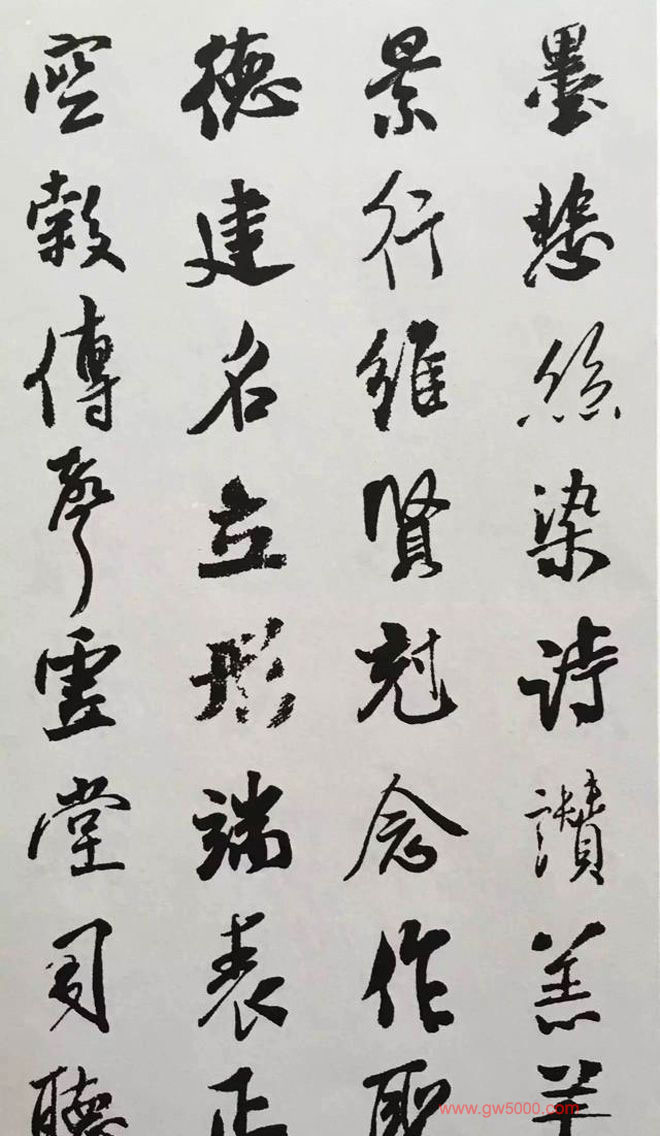 墨悲絲染詩讚羔羊
景行維賢尅念作聖
德建名立形端表正
空穀傳聲虛堂習聽
www.gw5000.com